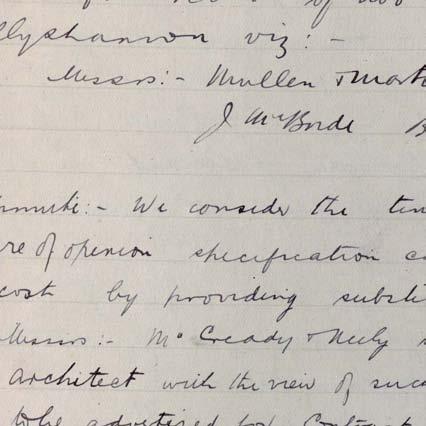 of
llyshannon viz:-
Messrs:- Mullen & Mart
J McBride B
mmittee:- We consider the ten
re of openion specification ca
cost by providing substi
Messrs:- Mc Cready & Neely
architect with the view of succ
to be advertised for Contract